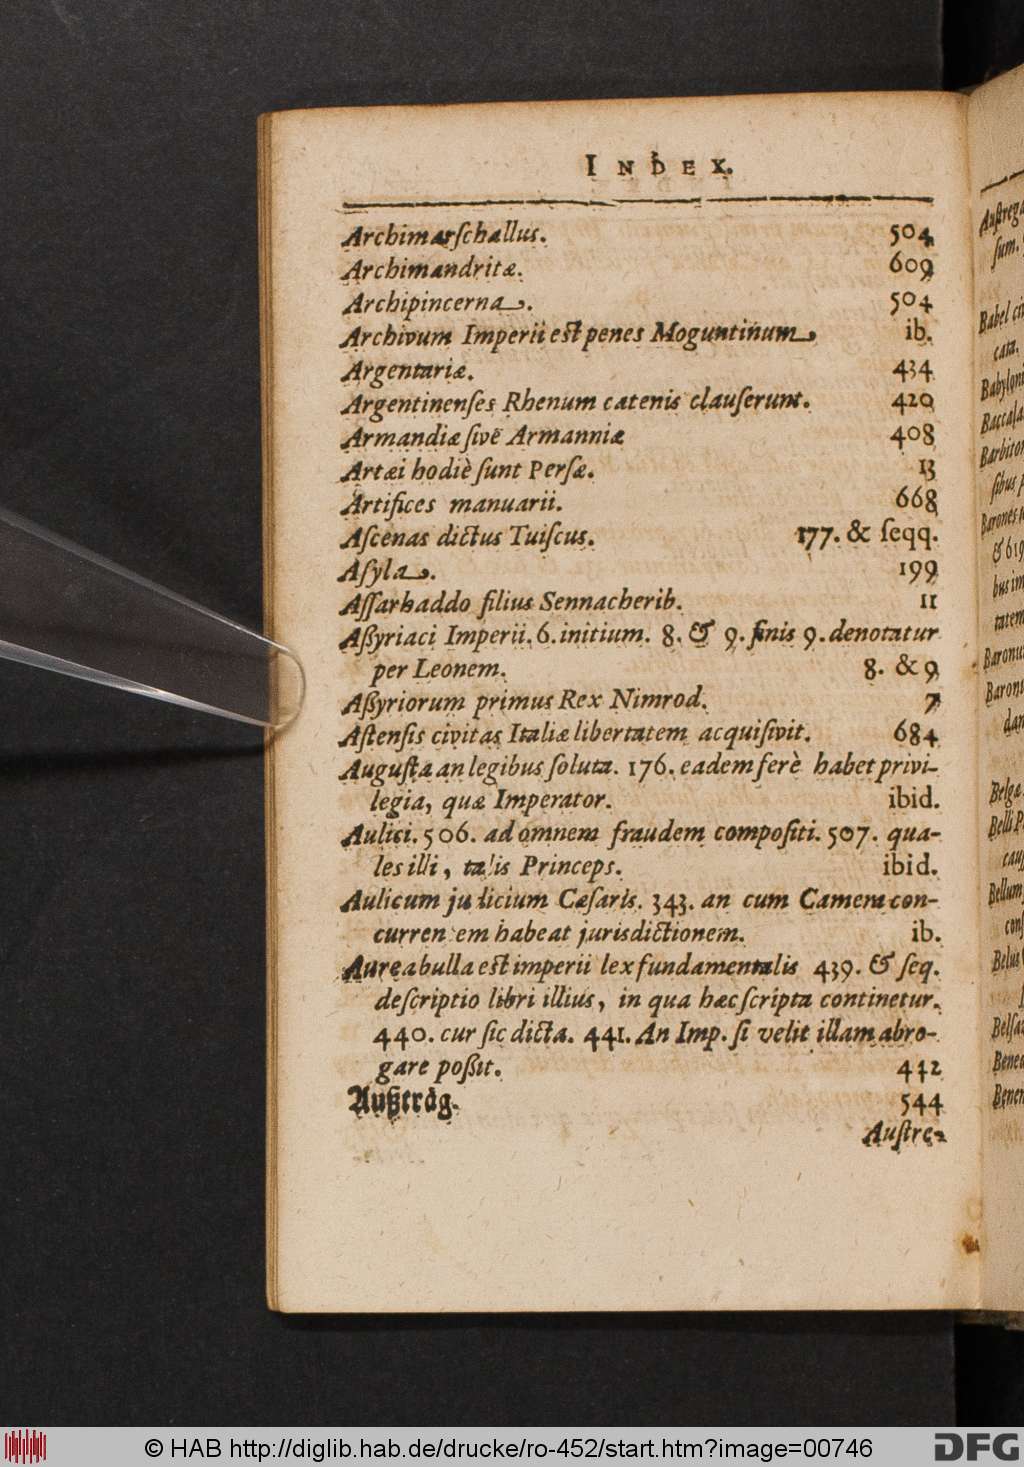 INDEX.
Archimarſchallus. 504
Archimandritæ. 609
Archipincerna. 504
Archivum Imperii est penes Moguntinum ib.
Argentariæ. 434
Argentinenſes Rhenum catenis clauſerunt. 420
Armandiæ ſivè Armanniæ 408
Artæi hodiè ſunt Perſæ. 13
Artifices manuarii. 668
Aſcenas dictus Tuiſcus. 177. & ſeqq.
Aſyla. 199
Aſſarhaddo filius Sennacherib. 11
Aßyriaci Imperii. 6. initium. 8. & 9. finis 9. denotatur
per Leonem. 8. & 9
Aßyriorum primus Rex Nimrod. 7
Aſtenſis civitas Italiæ libertatem acquiſivit. 684
Auguſta an legibus ſoluta. 176. eadem ferè habet privi-
legia, quæ Imperator. ibid.
Aulici. 506. ad omnem fraudem compoſiti. 507. qua-
les illi, talis Princeps. ibid.
Aulicum judicium Cæſaris. 343. an cum Camera con-
currentem habeat jurisdictionem. ib.
Aurea bulla est imperii lex fundamentalis 439. & ſeq.
deſcriptio libri illius, in qua hæc ſcripta continetur.
440. cur ſic dicta. 441. An Imp. ſi velit illam abro-
gare poßit. 442
Außträg. 544
Auſtre-
Auſtrega
ſum.
Babel
cata.
Babyloni
Baccala
Barbiton
ſibus
Barones
& 619
bus im
tatem
Baronu
Baronu
dan
Belgæ
Belli P
cauſ
Bellum
conſ
Belus
Belſa
Bened
Benen
© HAB http://diglib.hab.de/drucke/ro-452/start.htm?image=00746
DFG